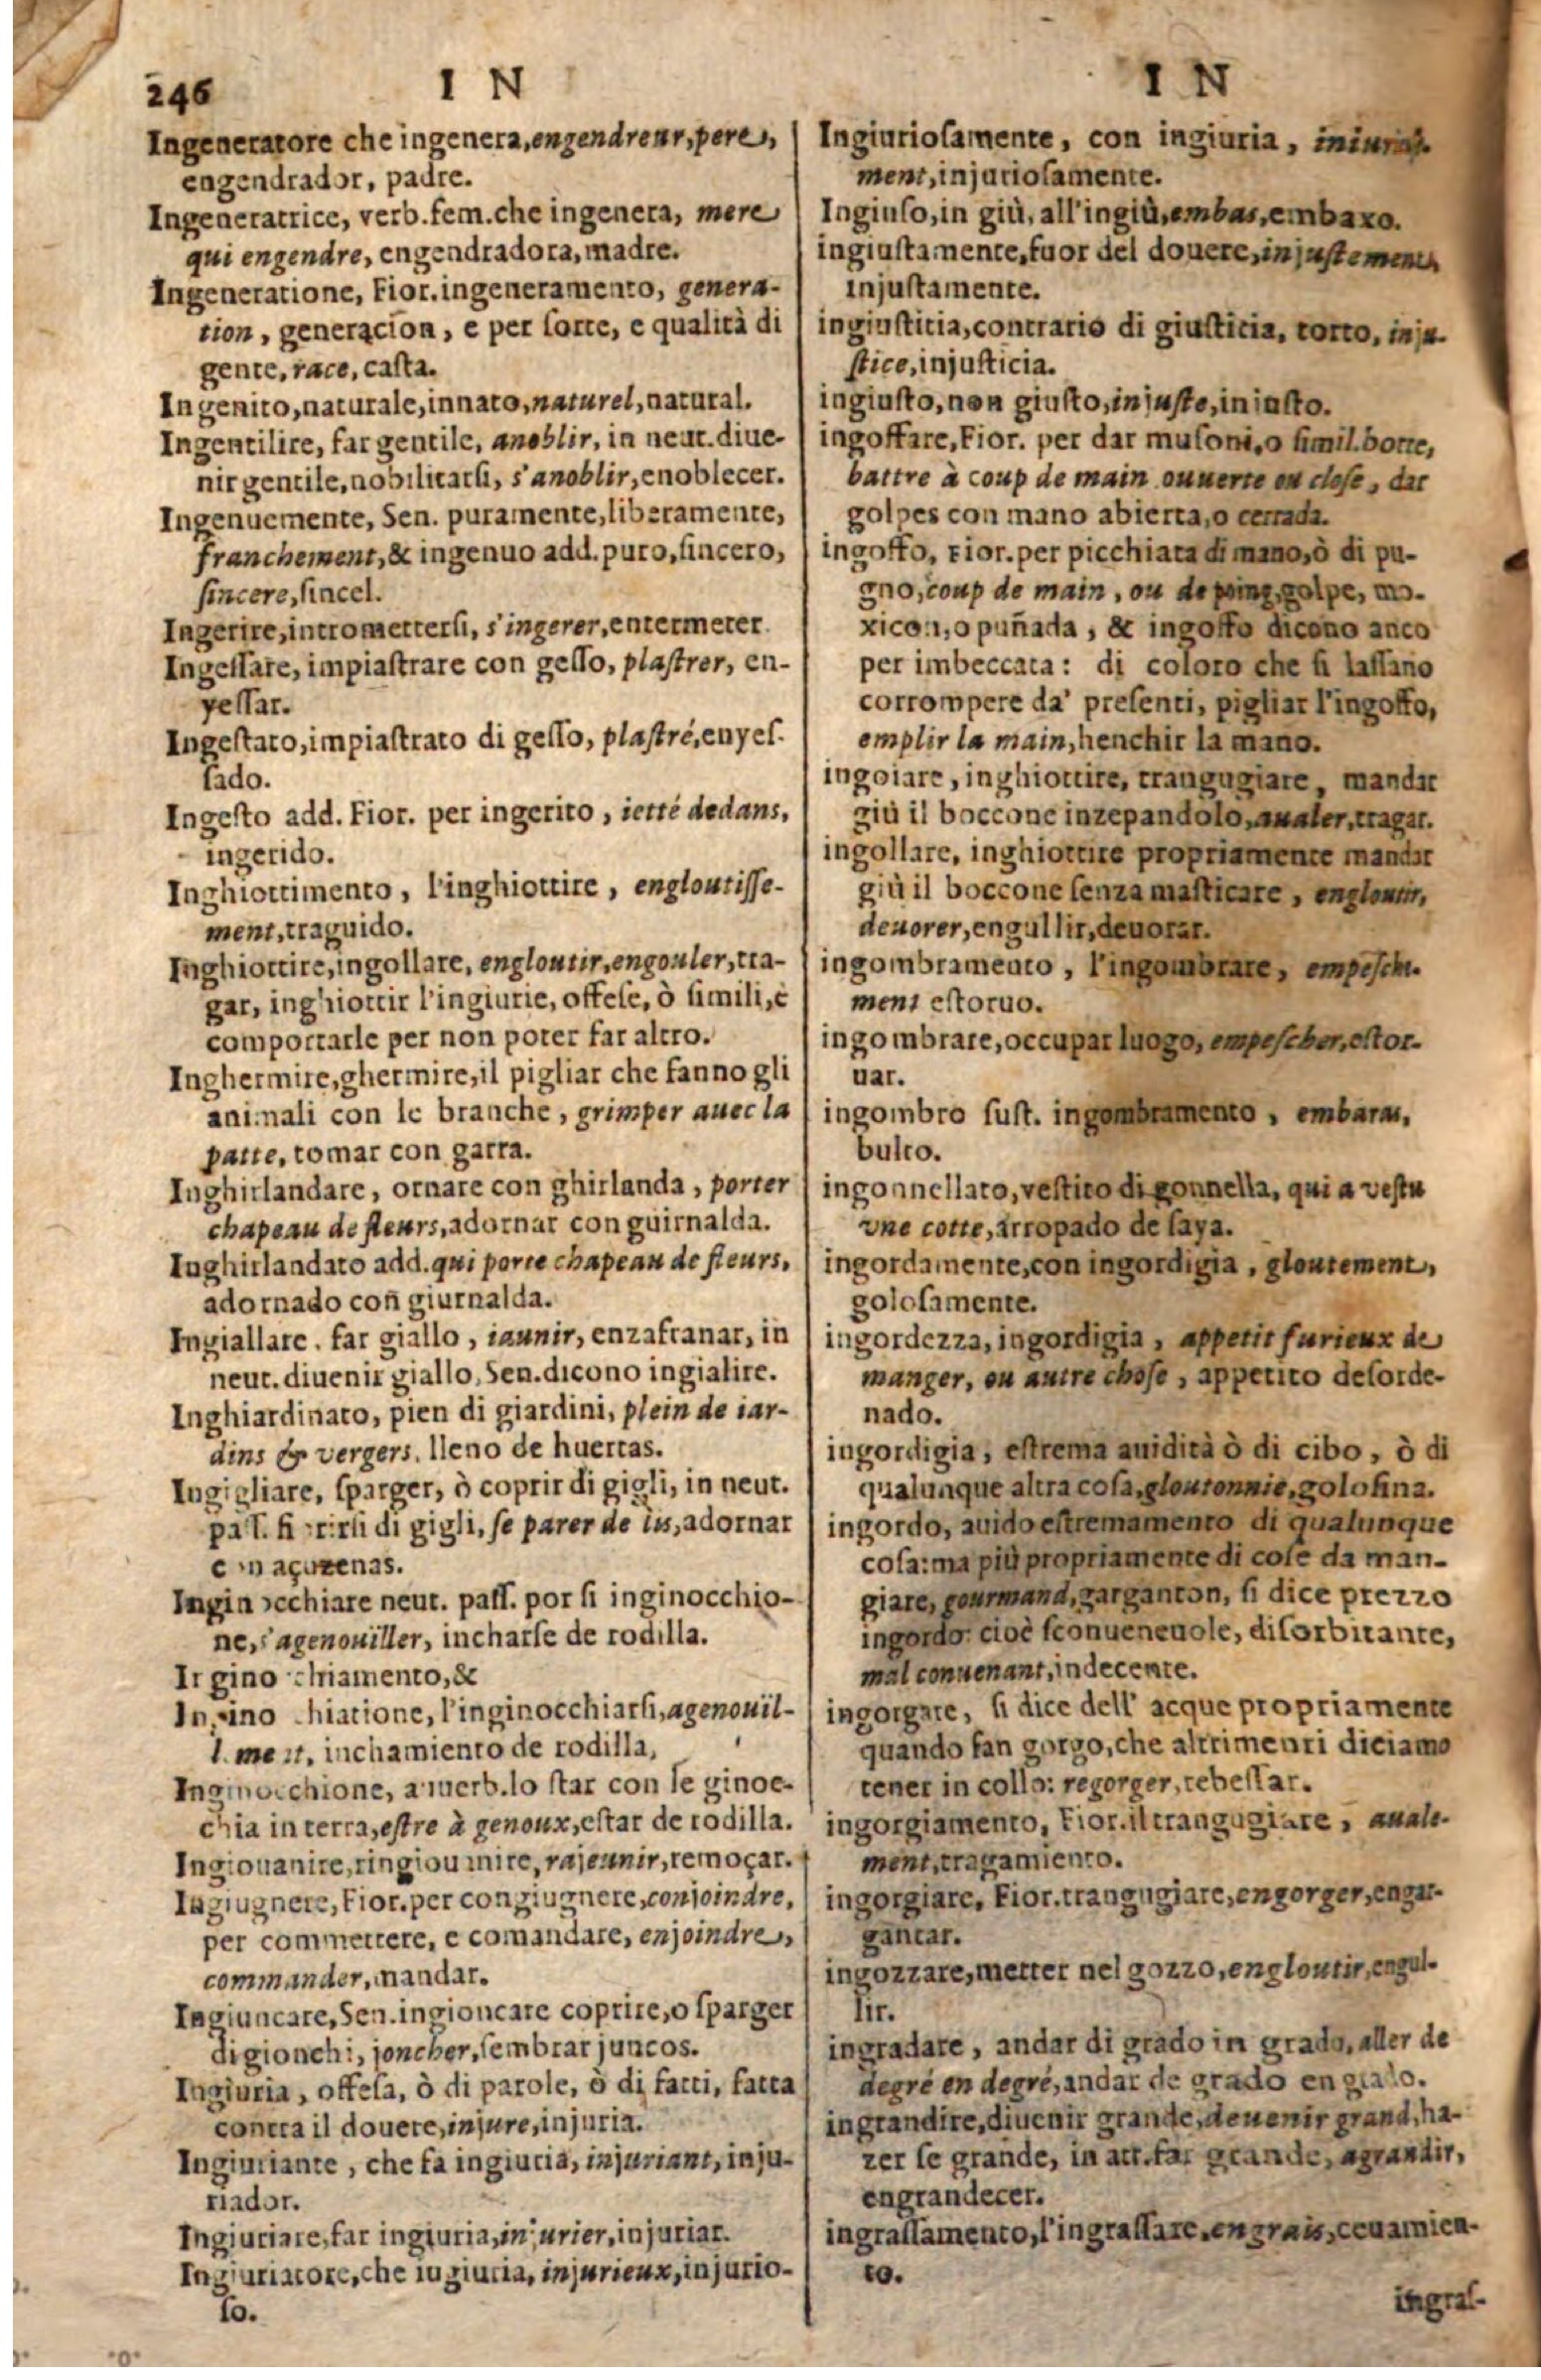 246
I N
Ingeneratore che ingenera, engendreur, pere,
engendrador, padre.
Ingeneratrice, verb. fem. che ingenera, mere
qui engendre, engendradora, madre.
Ingeneratione, Fior. ingeneramento, genera-
tion, generacion, e per ſorte, e qualità di
gente, race, caſta.
Ingenito, naturale, innato, naturel, natural.
Ingentilire, far gentile, anoblir, in neut. diue-
nir gentile, nobilitarſi, s'anoblir, enoblecer.
Ingenuemente, Sen. puramente, liberamente,
franchement, & ingenuo add. puro, ſincero,
ſincere, ſincel.
Ingerire, intrometterſi, s'ingerer, entermeter.
Ingeſſare, impiaſtrare con geſſo, plaſtrer, en-
yeſſar.
Ingeſtato, impiaſtrato di geſſo, plaſtré, enyeſ-
ſado.
Ingeſto add. Fior. per ingerito, ietté dedans,
ingerido.
Inghiottimento, l'inghiottire, engloutiſſe-
ment, traguido.
Inghiottire, ingollare, engloutir, engouler, tra-
gar, inghiottir l'ingiurie, offeſe, ò ſimili, è
comportarle per non poter far altro.
Inghermire, ghermire, il pigliar che fanno gli
animali con le branche, grimper auec la
patte, tomar con garra.
Inghirlandare, ornare con ghirlanda, porter
chapeau de fleurs, adornar con guirnalda.
Inghirlandato add. qui porte chapeau de fleurs,
adornado con giurnalda.
Ingiallare, far giallo, iaunir, enzafranar, in
neut. diuenir giallo, Sen. dicono ingialire.
Inghiardinato, pien di giardini, plein de iar-
dins & vergers, lleno de huertas.
Ingigliare, ſparger, ò coprir di gigli, in neut.
paſſ. fiorirſi di gigli, ſe parer de lis, adornar
con açuzenas.
Inginocchiare neut. paſſ. por ſi inginocchio-
ne, s'agenouïller, incharſe de rodilla.
Inginocchiamento, &
Inginocchiatione, l'inginocchiarſi, agenouïl-
lement, inchamiento de rodilla,
Inginocchione, auuerb. lo ſtar con le ginoc-
chia in terra, eſtre à genoux, eſtar de rodilla.
Ingiouanire, ringiouanire, rajeunir, remoçar.
Ingiugnere, Fior. per congiugnere, conjoindre,
per commettere, e comandare, enjoindre,
commander, mandar.
Ingiuncare, Sen. ingioncare coprire, o ſparger
di gionchi, joncher, ſembrar juncos.
Ingiuria, offeſa, ò di parole, ò di fatti, fatta
contra il douere, injure, injuria.
Ingiuriante, che fa ingiuria, injuriant, inju-
riador.
Ingiuriare, far ingiuria, injurier, injuriar.
Ingiuriatore, che iugiuria, injurieux, injurio-
ſo.
I N
Ingiurioſamente, con ingiuria,
ment, injurioſamente.
Ingiuſo, in giù, all'ingiù, embas, embaxo.
ingiuſtamente, fuor del douere, injuſtement,
injuſtamente.
ingiuſtitia, contrario di giuſtitia, torto, inju-
ſtice, injuſticia.
ingiuſto, non giuſto, injuſte, iniuſto.
ingoffare, Fior. per dar muſoni, o ſimil. botte,
battre à coup de main ouuerte ou cloſe, dar
golpes con mano abierta, o cerrada.
ingoffo, Fior. per picchiata di mano, ò di pu-
gno, coup de main, ou de poing, golpe, mo-
xicon, o puñada, & ingoffo dicono anco
per imbeccata: di coloro che ſi laſſano
corrompere da' preſenti, pigliar l'ingoffo,
emplir la main, henchir la mano.
ingoiare, inghiottire, trangugiare, mandar
giù il boccone inzepandolo, aualer, tragar.
ingollare, inghiottire propriamente mandar
giù il boccone ſenza maſticare, engloutir,
deuorer, engullir, deuorar.
ingombramento, l'ingombrare, empeſche-
ment eſtoruo.
ingombrare, occupar luogo, empeſcher, eſtor-
uar.
ingombro ſuſt. ingombramento, embaras,
bulto.
ingonnellato, veſtito di gonnella, qui a veſtu
vne cotte, arropado de ſaya.
ingordamente, con ingordigia, gloutement,
goloſamente.
ingordezza, ingordigia, appetit furieux de
manger, ou autre choſe, appetito deſorde-
nado.
ingordigia, eſtrema auidità ò di cibo, ò di
qualunque altra coſa, gloutonnie, goloſina.
ingordo, auido eſtremamento di qualunque
coſa: ma più propriamente di coſe da man-
giare, gourmand, garganton, ſi dice prezzo
ingordo: cioè ſconueneuole, diſorbitante,
mal conuenant, indecente.
ingorgare, ſi dice dell' acque propriamente
quando fan gorgo, che altrimenti diciamo
tener in collo: regorger, rebeſſar.
ingorgiamento, Fior. il trangugiare, auale-
ment, tragamiento.
ingorgiare, Fior. trangugiare, engorger, engar-
gantar.
ingozzare, metter nel gozzo, engloutir, engul-
lir.
ingradare, andar di grado in grado, aller de
degré en degré, andar de grado en grado.
ingrandire, diuenir grande, deuenir grand, ha-
zer ſe grande, in att. far grande, agrandir,
engrandecer.
ingraſſamento, l'ingraſſare, engrais, ceuamien-
to.
ingraſ-